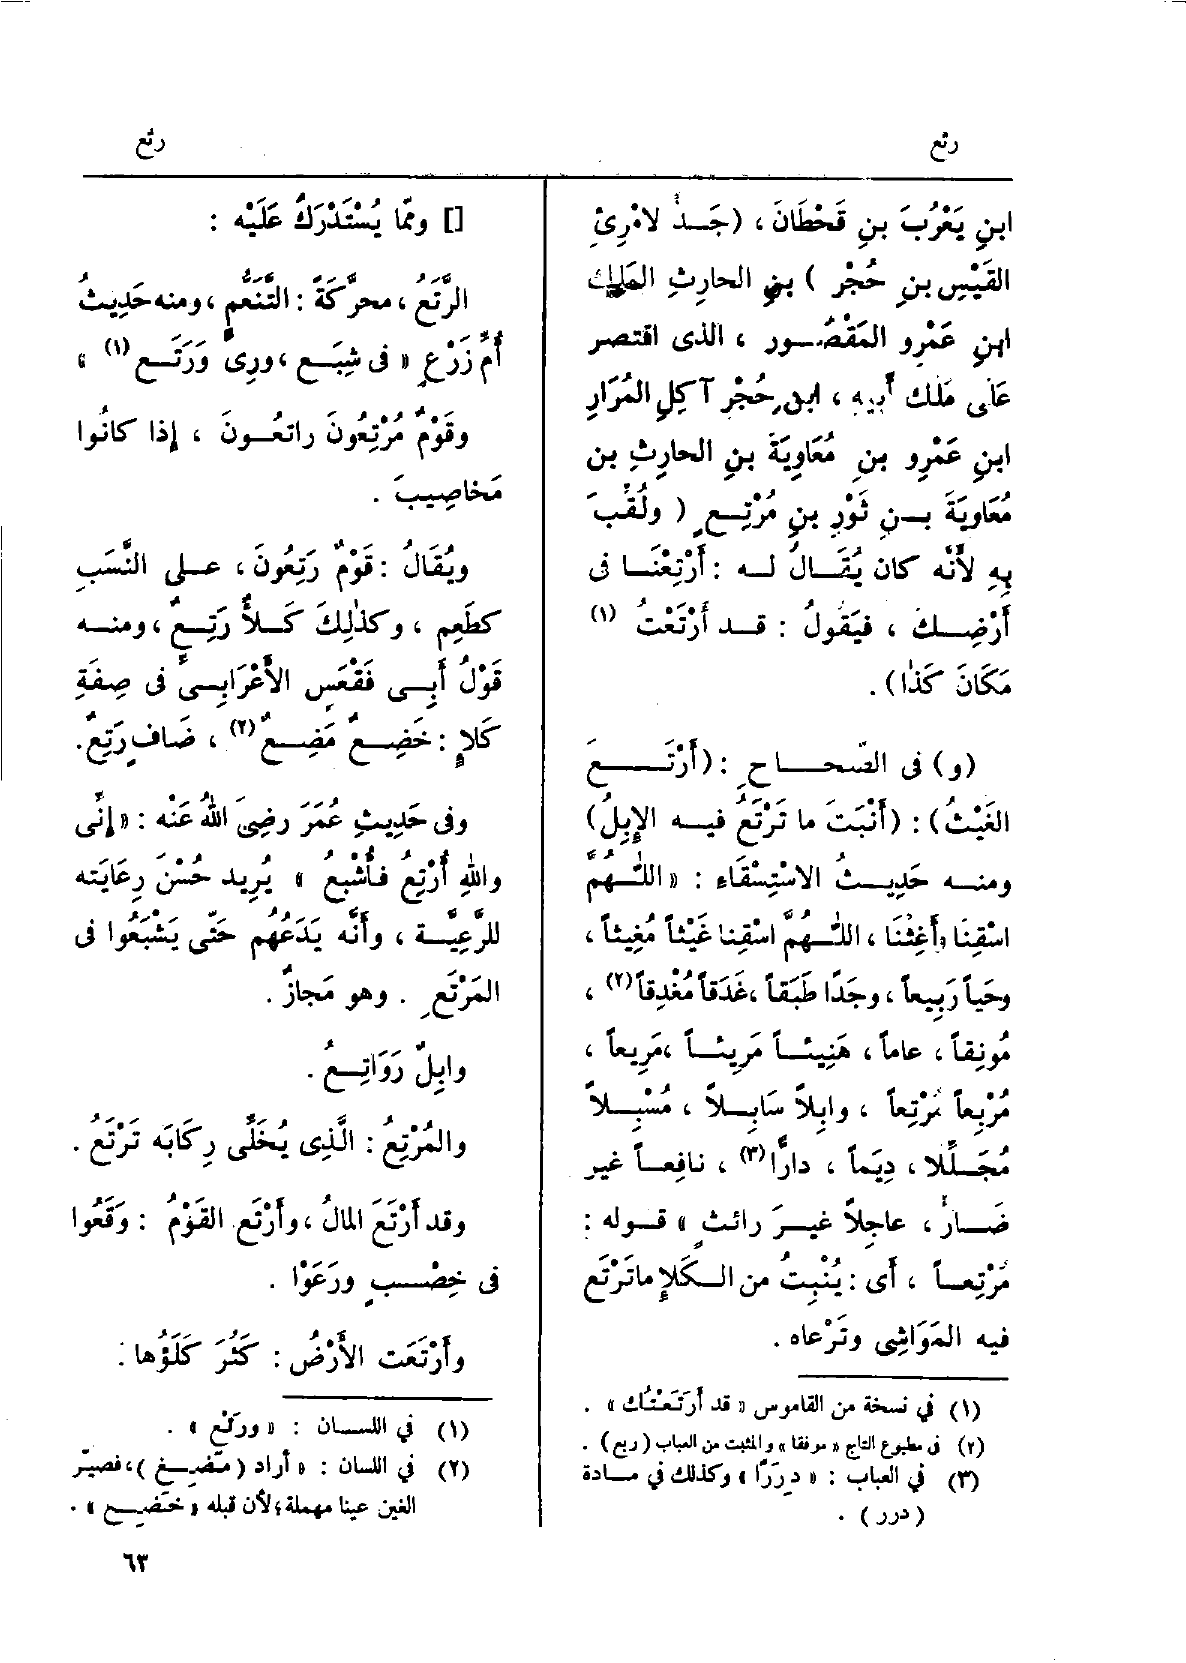 رتع
رتع
ابنِ يَعْرُبَ بنِ قَحْطَانَ ، (جَـدُّ لامْرِئِ
القَيْسِ بنِ حُجْر ) بنِ الحارِثِ المَلِك
ابنِ عَمْرٍو المَقْصُـور ، الذى اقتصر
عَلَى مُلك أَبِيهِ ، ابن حُجْر آكِلِ المُرَارِ
ابنِ عَمْرِو بنِ مُعَاوِيَةَ بنِ الحارِثِ بن
مُعَاوِيَةَ بـنِ ثَوْرِ بنِ مُرْتِـعٍ ( ولُقِّبَ
بِهِ لأَنَّه كان يُقَـالُ لـه : أَرْتِعْنَـا فى
أَرْضِـكَ ، فيَقُولُ : قـد أَرْتَعْتُ (١)
مَكَانَ كَذَا) .
(و) فى الصّحـاحِ : (أَرْتَـعَ
الغَيْثُ) : (أَنْبَتَ ما تَرْتَعُ فيـه الإِبِلُ)
ومنـه حَدِيـثُ الاسْتِسْقَاءِ : « اللّٰـهُمَّ
اسْقِنَا وأَغِثْنَا ، اللّٰـهُمَّ اسْقِنا غَيْثاً مُغِيثاً ،
وحَياً رَبِيعاً ، وجَدًا طَبَقاً ، غَدَقاً مُغْدِقاً (٢) ،
مُونِقاً ، عاماً ، هَنِيئـاً مَرِيئـاً ،مَرِيعاً ،
مُرْبِعاً مُرْتِعاً ، وابِلاً سَابِـلاً ، مُسْبِـلاً
مُجَـلِّلا ، دِيَماً ، دارًّا (٣) ، نافِعـاً غير
ضَـارٍّ ، عاجِلاً غيـرَ رائثٍ » قـوله :
مُرْتِعـاً ، أَى : يُنْبِتُ من الـكَلإِ ماتَرْتَع
فيه المَوَاشِى وتَرْعاه .
(١) في نسخة من القاموس « قد أَرْتَعْتُكَ » .
(٢) فى مطبوع التاج « مرفقا » والمثبت من العباب (ربع) .
(٣) في العباب : « دِرَرًا » وكذلك في مـادة
( درر ) .
[] وممّا يُسْتَدْرَكُ عَلَيْه :
الرَّتَعُ ، محرَّكَةً : التَّنَعُّم ، ومنه حَدِيثُ
أُمِّ زَرْعٍ « فى شِبَـعٍ ، ورِىٍّ وَرَتَـعٍ (١) »
وقَوْمٌ مُرْتِعُونَ راتعُـونَ ، إذا كانُوا
مَخاصِيبَ .
ويُقَالُ : قَوْمٌ رَتِعُونَ ، عـلى النَّسَبِ
كطَعِم ، وكذٰلِكَ كَـلأٌ رَتِـعٌ ، ومنـه
قَوْلُ أَبِـى فَقْعَسٍ الأَعْرَابِـىِّ فى صِفَةِ
كَلإٍ : خَضِـعٌ مَضِـعٌ (٢) ، ضَافٍ رَتِعٌ.
وفى حَدِيثِ عُمَرَ رضِىَ اللهُ عَنْه : «إِنِّى
واللهِ أُرْتِعُ فأُشْبِعُ » يُرِيد حُسْنَ رِعَايَته
للرَّعِيَّـة ، وأَنَّه يَدَعُهُم حَتَّى يَشْبَعُوا فى
المَرْتَعِ . وهو مَجازٌ .
وإبِلٌ رَوَاتِـعُ .
والمُرْتِعُ : الَّذِى يُخَلِّى رِكَابَه تَرْتَعُ .
وقد أَرْتَعَ المالُ ، وأَرْتَع القَوْمُ : وَقَعُوا
فى خِصْـبٍ ورَعَوْا .
وأَرْتَعَت الأَرْضُ : كَثُرَ كَلَؤُها .
(١) في اللسان : « ورَتْع » .
(٢) في اللسان : « أراد (مَضِـغ )، فصيّر
الغين عينا مهملة؛ لأن قبله « خَضِـع » .
٦٣